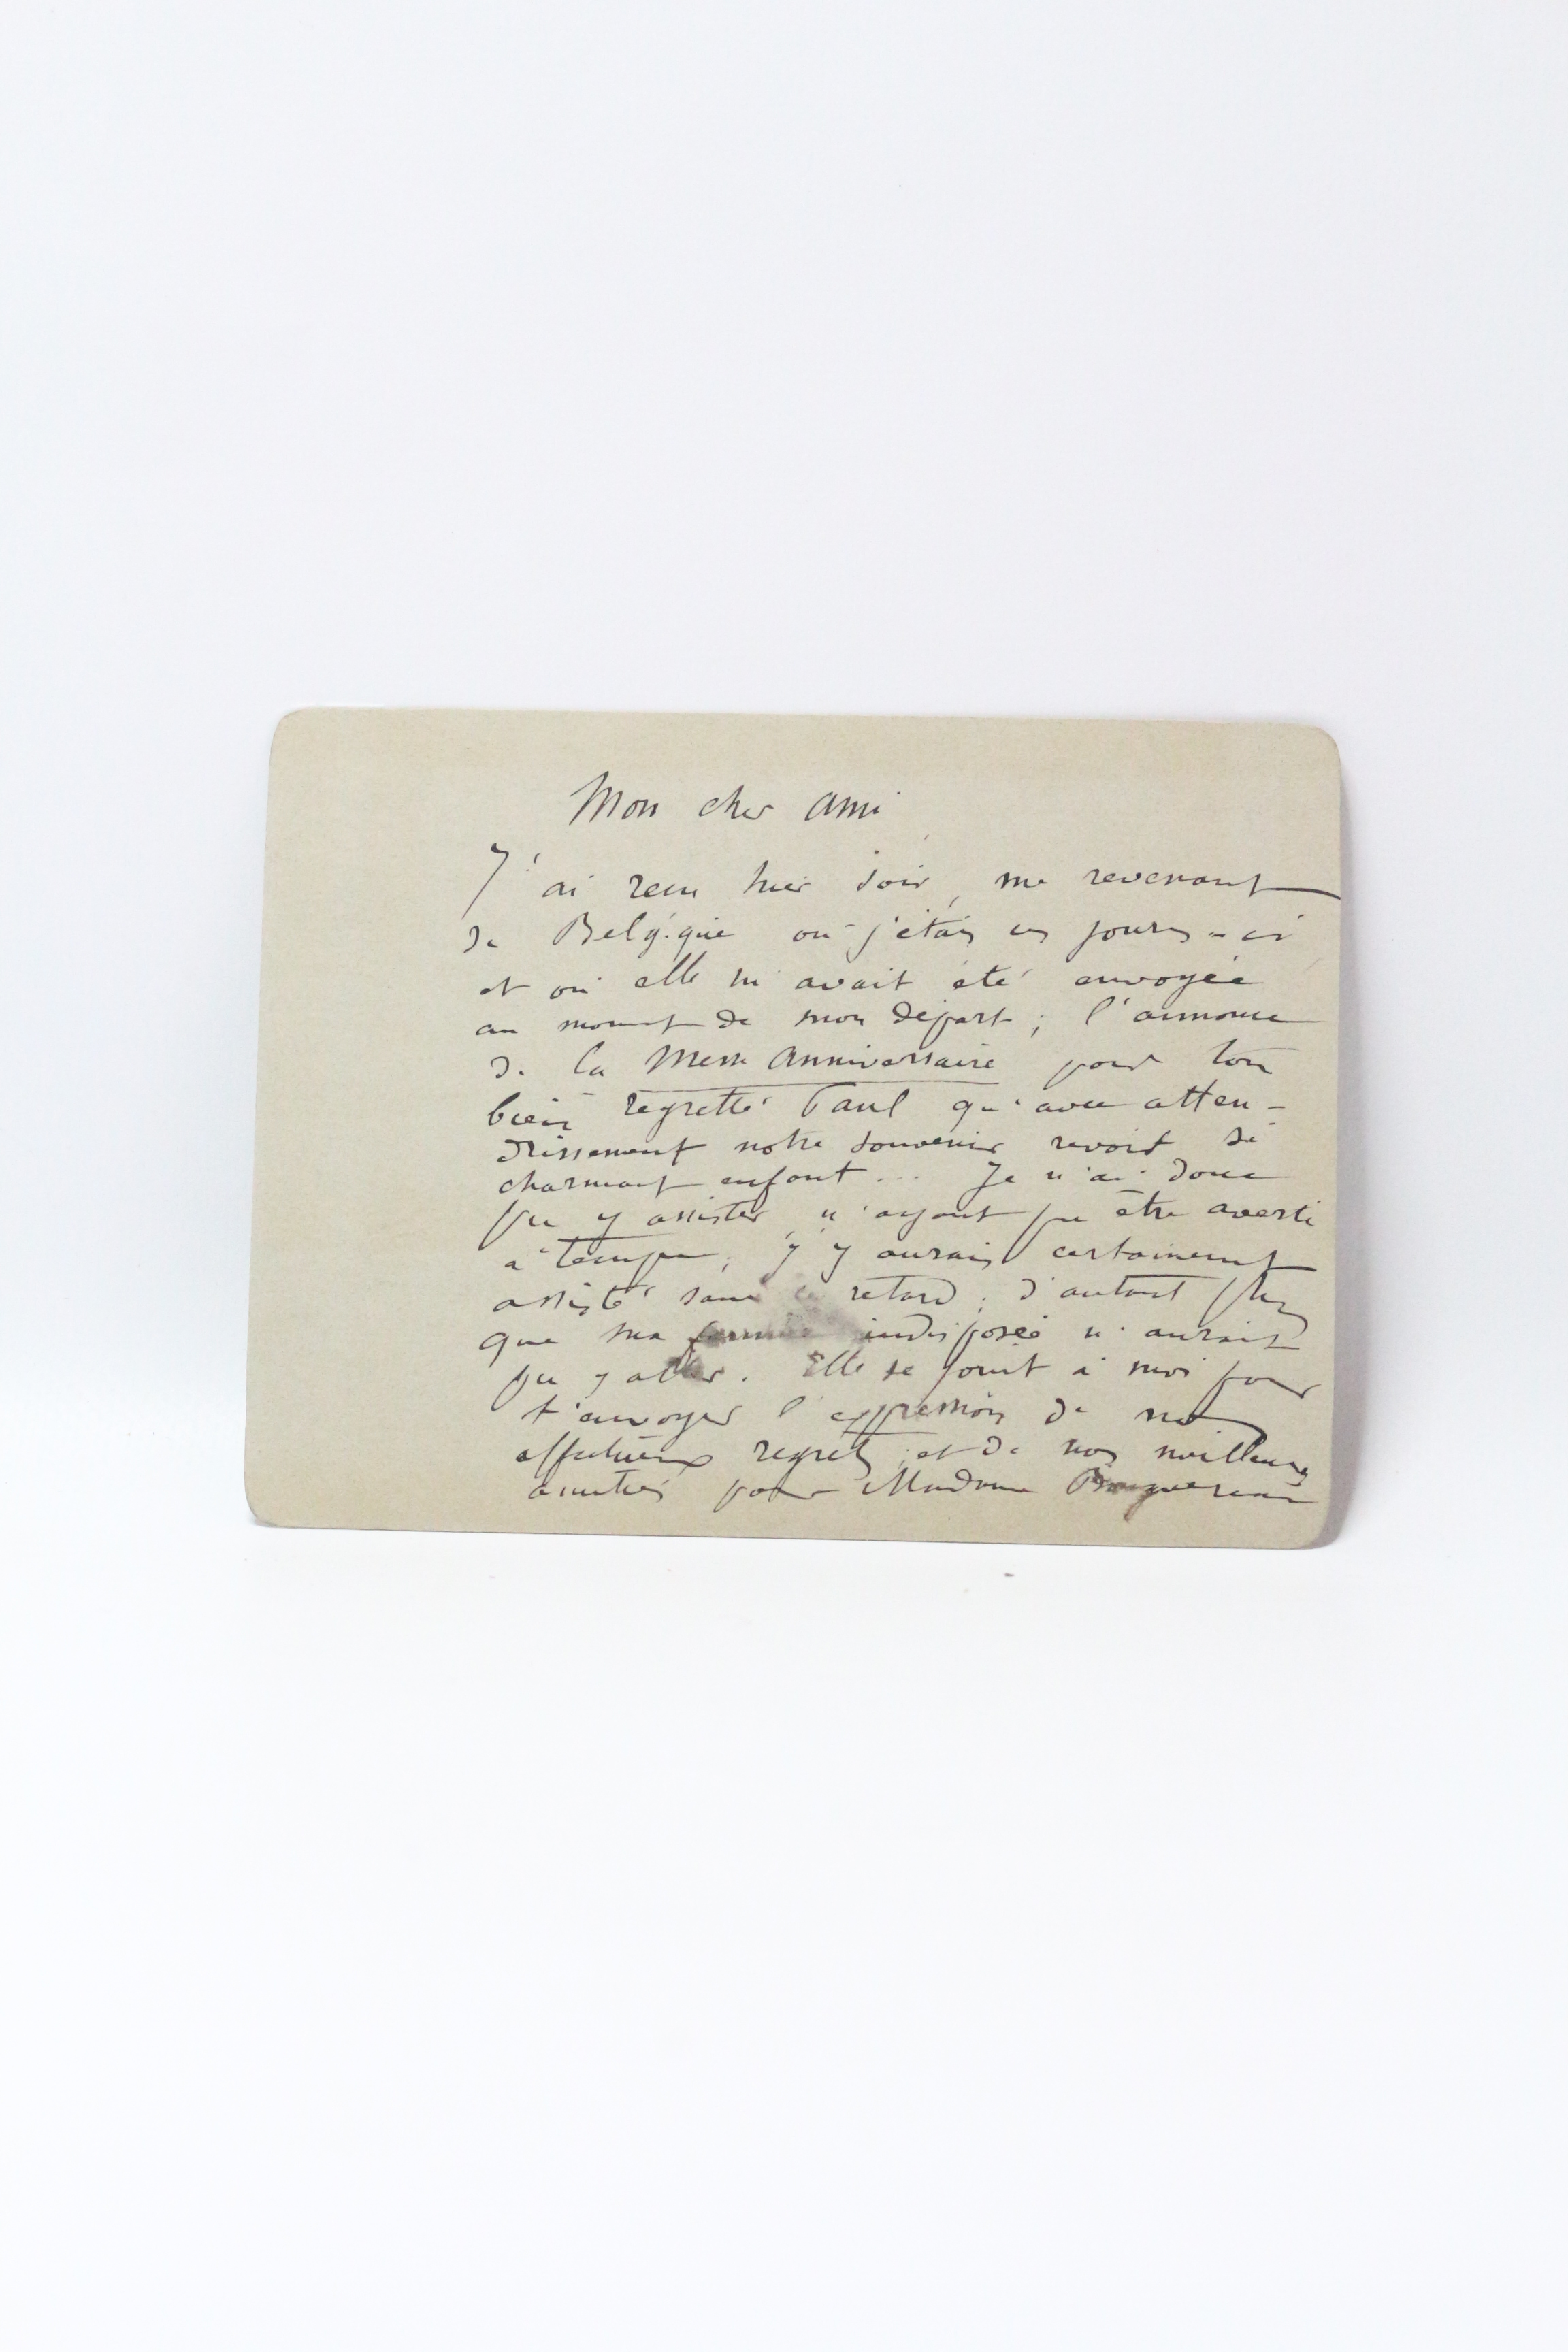 Mon cher ami
J'ai reçu hier soir, me revenant
de Belgique où j'étais ces jours-ci
et où elle m'avait été envoyée
au moment de mon départ ; l'annonce
de la Messe Anniversaire pour ton
bien regretté Paul qu'avec atten-
drissement notre souvenir revoit si
charmant enfant... Je n'ai donc
pu y assister, n'ayant pu être averti
à temps ; j'y aurais certainement
assisté sans ce retard ; d'autant plus
que ma femme indisposée n'aurait
pu y aller. Elle se joint à moi pour
t'envoyer l'expression de nos
affectueux regrets et de nos meilleures
amitiés pour Madame